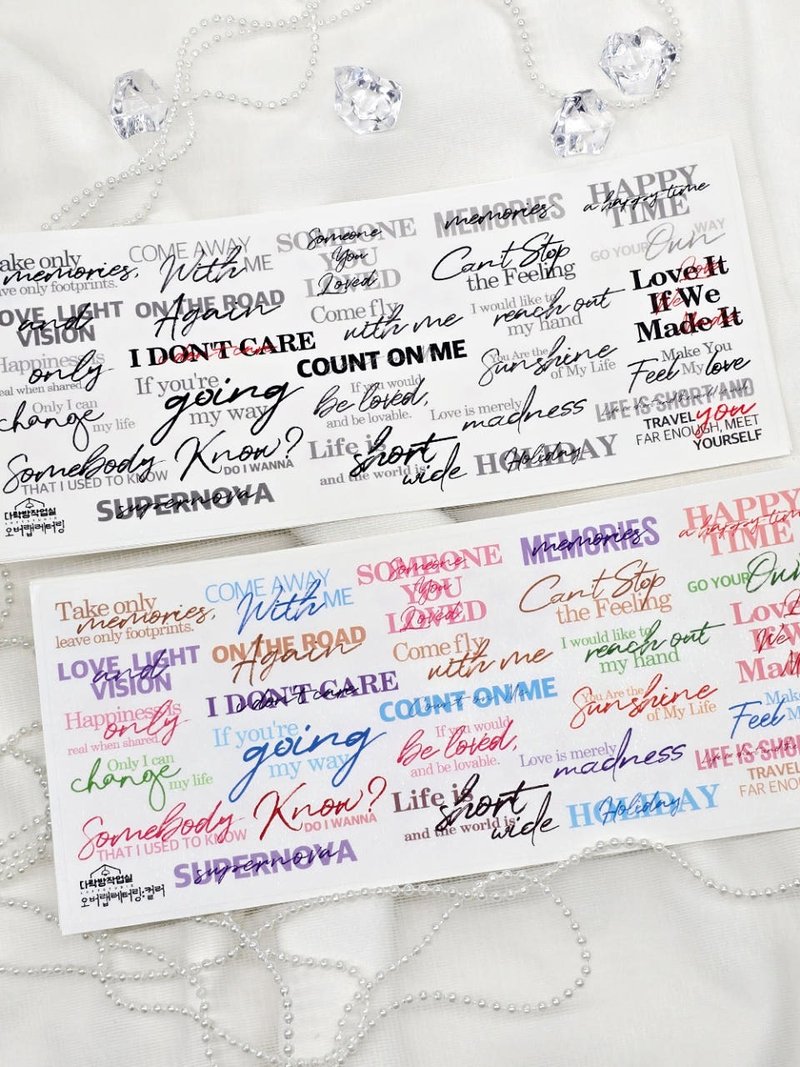 Take only
memories,
leave only footprints.
COME AWAY
With ME
SOMEONE
Someone
YOU
You
LOVED
Loved
MEMORIES
memories
HAPPY
a happy time
TIME
LOVE, LIGHT
and
VISION
ON THE ROAD
Again
Come fly
with me
Can't Stop
the Feeling
GO YOUR Own WAY
I would like to
reach out
my hand
Love It
If We
Made It
Happiness is
only
real when shared
I DON'T CARE
i don't care
COUNT ON ME
You Are the
Sunshine
of My Life
Make You
Feel My love
Only I can
change
my life
If you're
going
my way
If you would
Be loved,
and be lovable.
Love is merely
madness
LIFE IS SHORT AND
TRAVEL
FAR ENOUGH, MEET
you
YOURSELF
Somebody Know?
THAT I USED TO KNOW
DO I WANNA
Life is
short
and the world is
wide
HOLIDAY
Holiday
SUPERNOVA
supernova
다락방작업실
오버랩레터링
Take only
memories,
leave only footprints.
COME AWAY
With ME
SOMEONE
Someone
YOU
You
LOVED
Loved
MEMORIES
memories
HAPPY
a happy time
TIME
LOVE, LIGHT
and
VISION
ON THE ROAD
Again
Come fly
with me
Can't Stop
the Feeling
GO YOUR Own
I would like to
reach out
my hand
Love
If We
Made
Happiness is
only
real when shared
I DON'T CARE
i don't care
COUNT ON ME
Count on me
You Are the
Sunshine
of My Life
Make
Feel M
Only I can
change
my life
If you're
going
my way
If you would
Be loved,
and be lovable.
Love is merely
madness
LIFE IS SHOR
TRAVEL
FAR ENOU
Somebody Know?
THAT I USED TO KNOW
DO I WANNA
Life is
short
and the world is
wide
HOLIDAY
Holiday
SUPERNOVA
supernova
다락방작업실
오버랩레터링:컬러